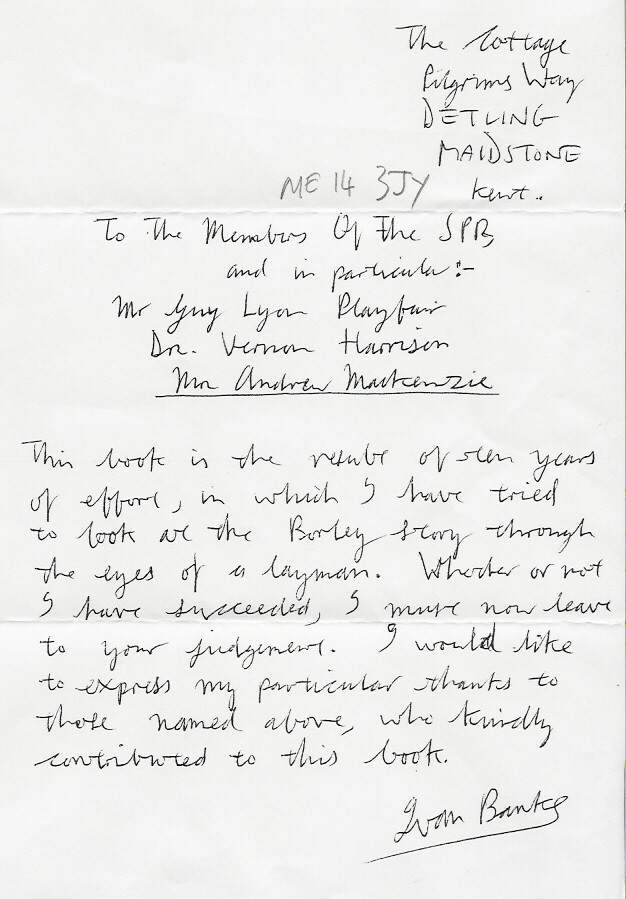 The Cottage
Pilgrims Way
DETLING
MAIDSTONE
ME 14 3JY Kent.
To The Members Of The SPR,
and in particular:-
Mr Guy Lyon Playfair
Dr. Vernon Harrison
Mr Andrew Mackenzie
This book is the result of ten years
of effort, in which I have tried
to look at the Borley story through
the eyes of a layman. Whether or not
I have succeeded, I must now leave
to your judgement. I would like
to express my particular thanks to
those named above, who kindly
contributed to this book.
Ivan Banks